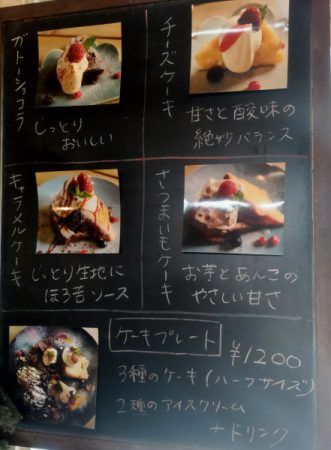 ガトーショコラ
しっとり
おいしい
チーズケーキ
甘さと酸味の
絶妙バランス
キャラメルケーキ
しっとり生地に
ほろ苦ソース
さつまいもケーキ
お芋とあんこの
やさしい甘さ
ケーキプレート
¥1200
3種のケーキ(ハーフサイズ)
2種のアイスクリーム
+ドリンク